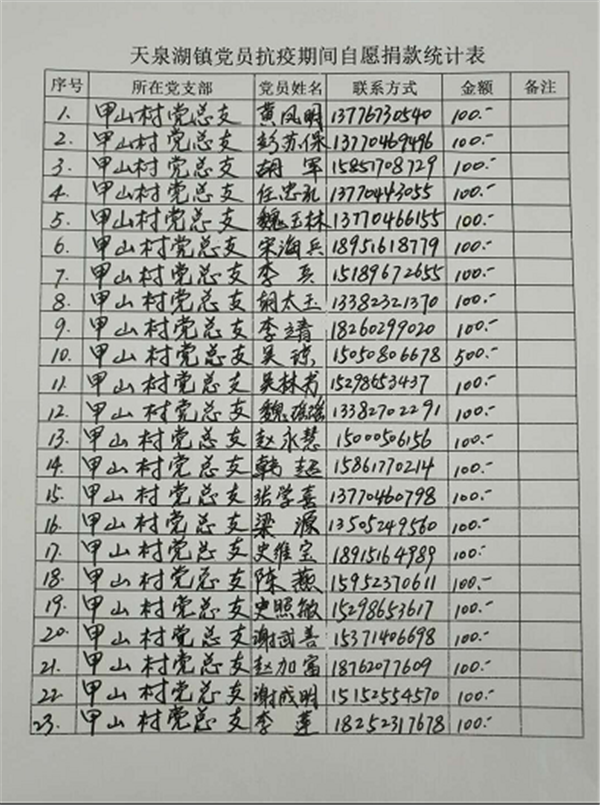 天泉湖镇党员抗疫期间自愿捐款统计表
序号 所在党支部 党员姓名 联系方式 金额 备注
1. 甲山村党总支 黄凤明 13776730540 100.-
2. 甲山村党总支 彭苏保 13770469496 100.-
3. 甲山村党总支 胡军 15851708729 100.-
4. 甲山村党总支 任忠礼 13770443055 100.-
5. 甲山村党总支 魏玉林 13770466155 100.-
6. 甲山村党总支 宋海兵 18951618779 100.-
7. 甲山村党总支 李兵 15189672655 100.-
8. 甲山村党总支 胡太玉 13382321370 100.-
9. 甲山村党总支 李靖 18260299020 100.-
10. 甲山村党总支 吴琼 15050806678 500.-
11. 甲山村党总支 吴林书 15298653437 100.-
12. 甲山村党总支 魏瑶瑶 13382702291 100.-
13. 甲山村党总支 赵永慧 15000506156 100.-
14. 甲山村党总支 韩超 15861770214 100.-
15. 甲山村党总支 张学喜 13770460798 100.-
16. 甲山村党总支 梁源 13505249560 100.-
17. 甲山村党总支 史维宝 18915164989 100.-
18. 甲山村党总支 陈燕 15952370611 100.-
19. 甲山村党总支 史照敏 15298653617 100.-
20. 甲山村党总支 谢武善 15371406698 100.-
21. 甲山村党总支 赵加富 18762077609 100.-
22. 甲山村党总支 谢成明 15152554570 100.-
23. 甲山村党总支 李莲 18252317678 100.-